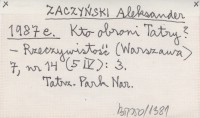 ZACZYŃSKI Aleksander
1987 e. Kto obroni Tatry?
- Rzeczywistość (Warszawa)
7, nr 14 (5 IV): 3.
Tatrz. Park Nar.
/1989